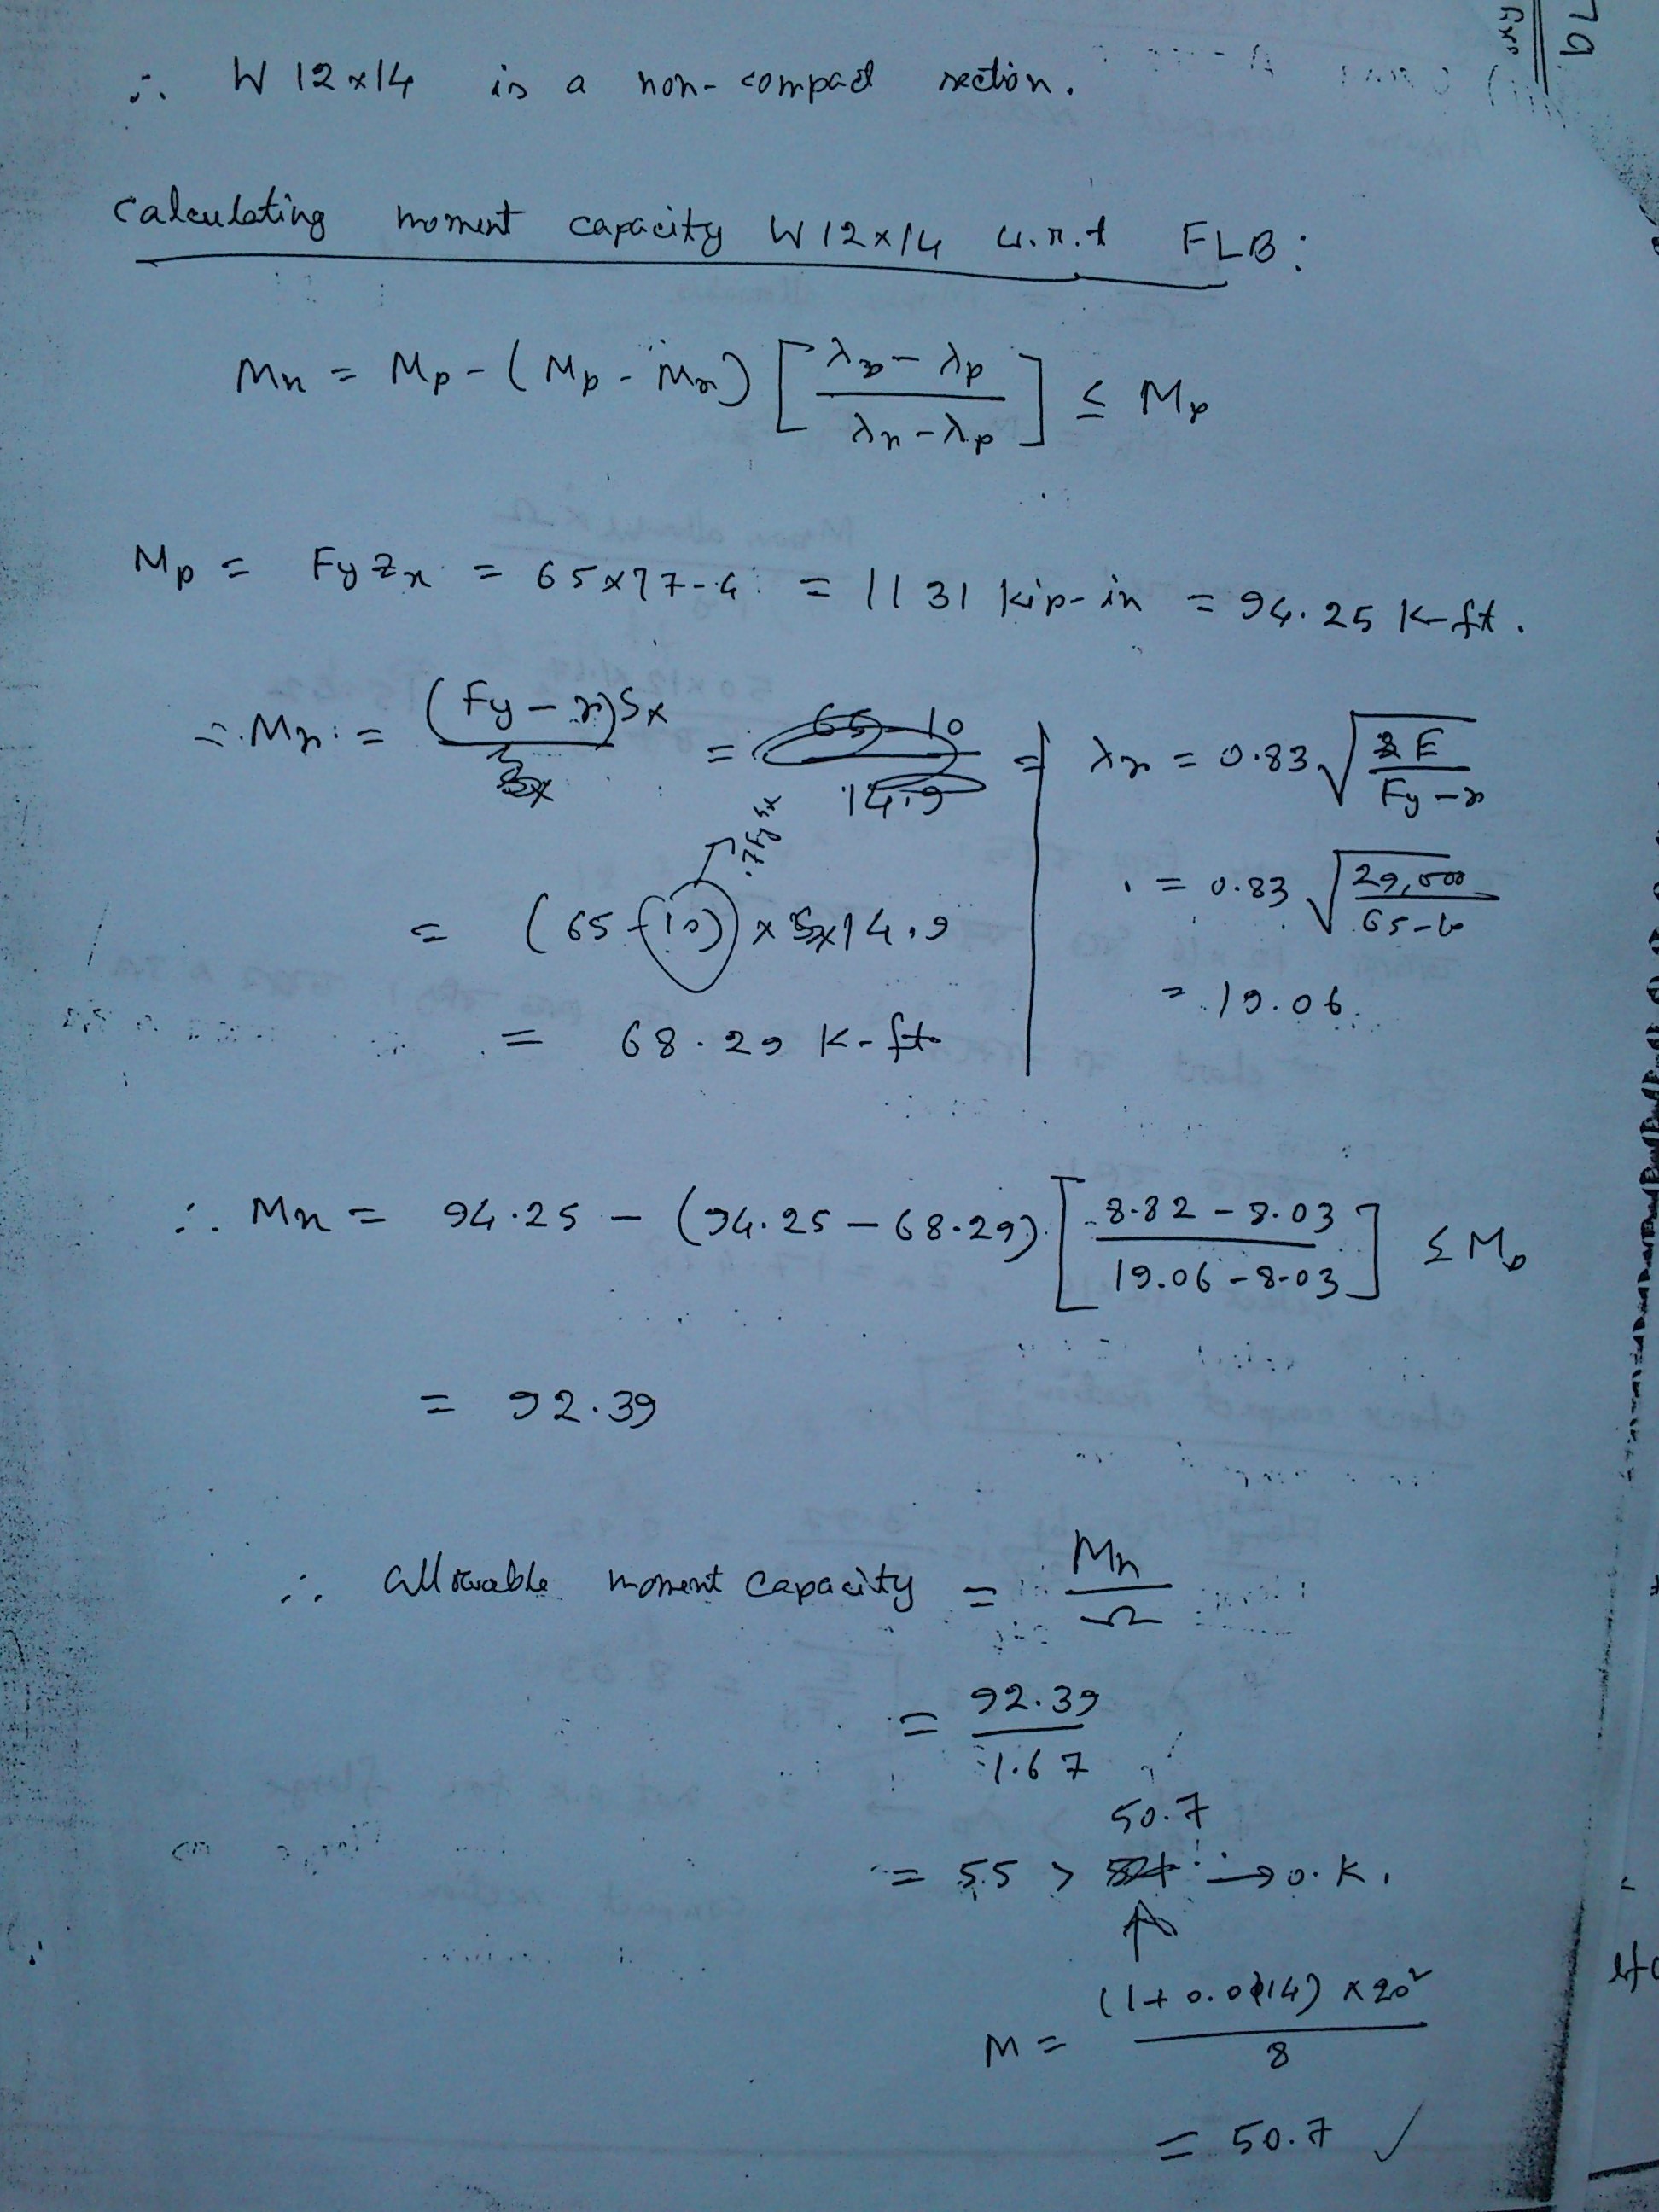 ∴ W 12x14 is a non-compact section.
Calculating moment capacity W12x14 w.r.t FLB:
Mn = Mp - (Mp - Mr) [ (λ - λp) / (λr - λp) ] ≤ Mp
Mp = Fy Zx = 65x17.4 = 1131 kip-in = 94.25 K-ft.
∴ Mr = (Fy - r)Sx = 65-10 / 14.9 =
.7Fy Sx
= (65-10) x 14.9
= 68.29 K-ft
λr = 0.83 √(E / Fy-r)
= 0.83 √(29,000 / 65-10)
= 19.06
∴ Mn = 94.25 - (94.25 - 68.29) [ (8.82 - 8.03) / (19.06 - 8.03) ] ≤ Mp
= 92.39
∴ allowable moment capacity = Mn / Ω
= 92.39 / 1.67
50.7
= 55 > → O.K.
↑
M = (1+0.014) x 20² / 8
= 50.7 ✓